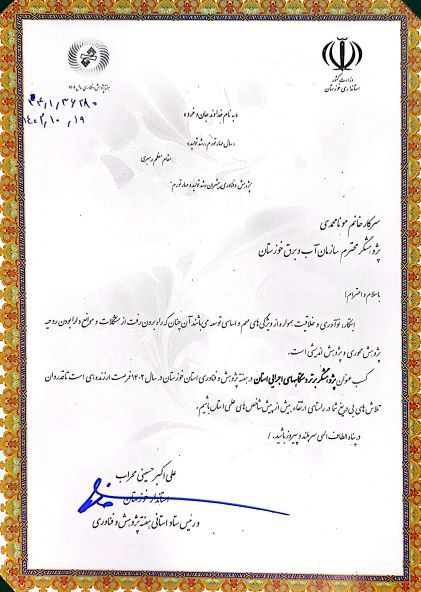 وزارت کشور
استانداری خوزستان
هفته پژوهش و فناوری سال ۱۴۰۲
۳۴/۱/۳۶۲۸۰
۱۴۰۲/۱۰/۱۹
«به نام خداوند جان و خرد»
«سال مهار تورم، رشد تولید»
مقام معظم رهبری
پژوهش و فناوری پیشران رشد تولید و مهار تورم"
سرکار خانم مونا محمدی
پژوهشگر محترم سازمان آب و برق خوزستان
باسلام و احترام؛
ابتکار، نوآوری و خلاقیت همواره از ویژگی‌های مهم و اساسی توسعه می‌باشند آن چنان که راه برون رفت از مشکلات و موانع دارا بودن روحیه
پژوهش محوری و پژوهش اندیشی است.
کسب عنوان پژوهشگر برتر دستگاههای اجرایی استان در هفته پژوهش و فناوری استان خوزستان در سال ۱۴۰۲ فرصت ارزنده ای است تا قدردان
تلاش های بی دریغ شما در راستای ارتقاء بیش از پیش شاخص های علمی استان باشیم.
در پناه الطاف الهی سربلند و پیروز باشید. /
علی اکبر حسینی محراب
استاندار خوزستان
و رئیس ستاد استانی هفته پژوهش و فناوری